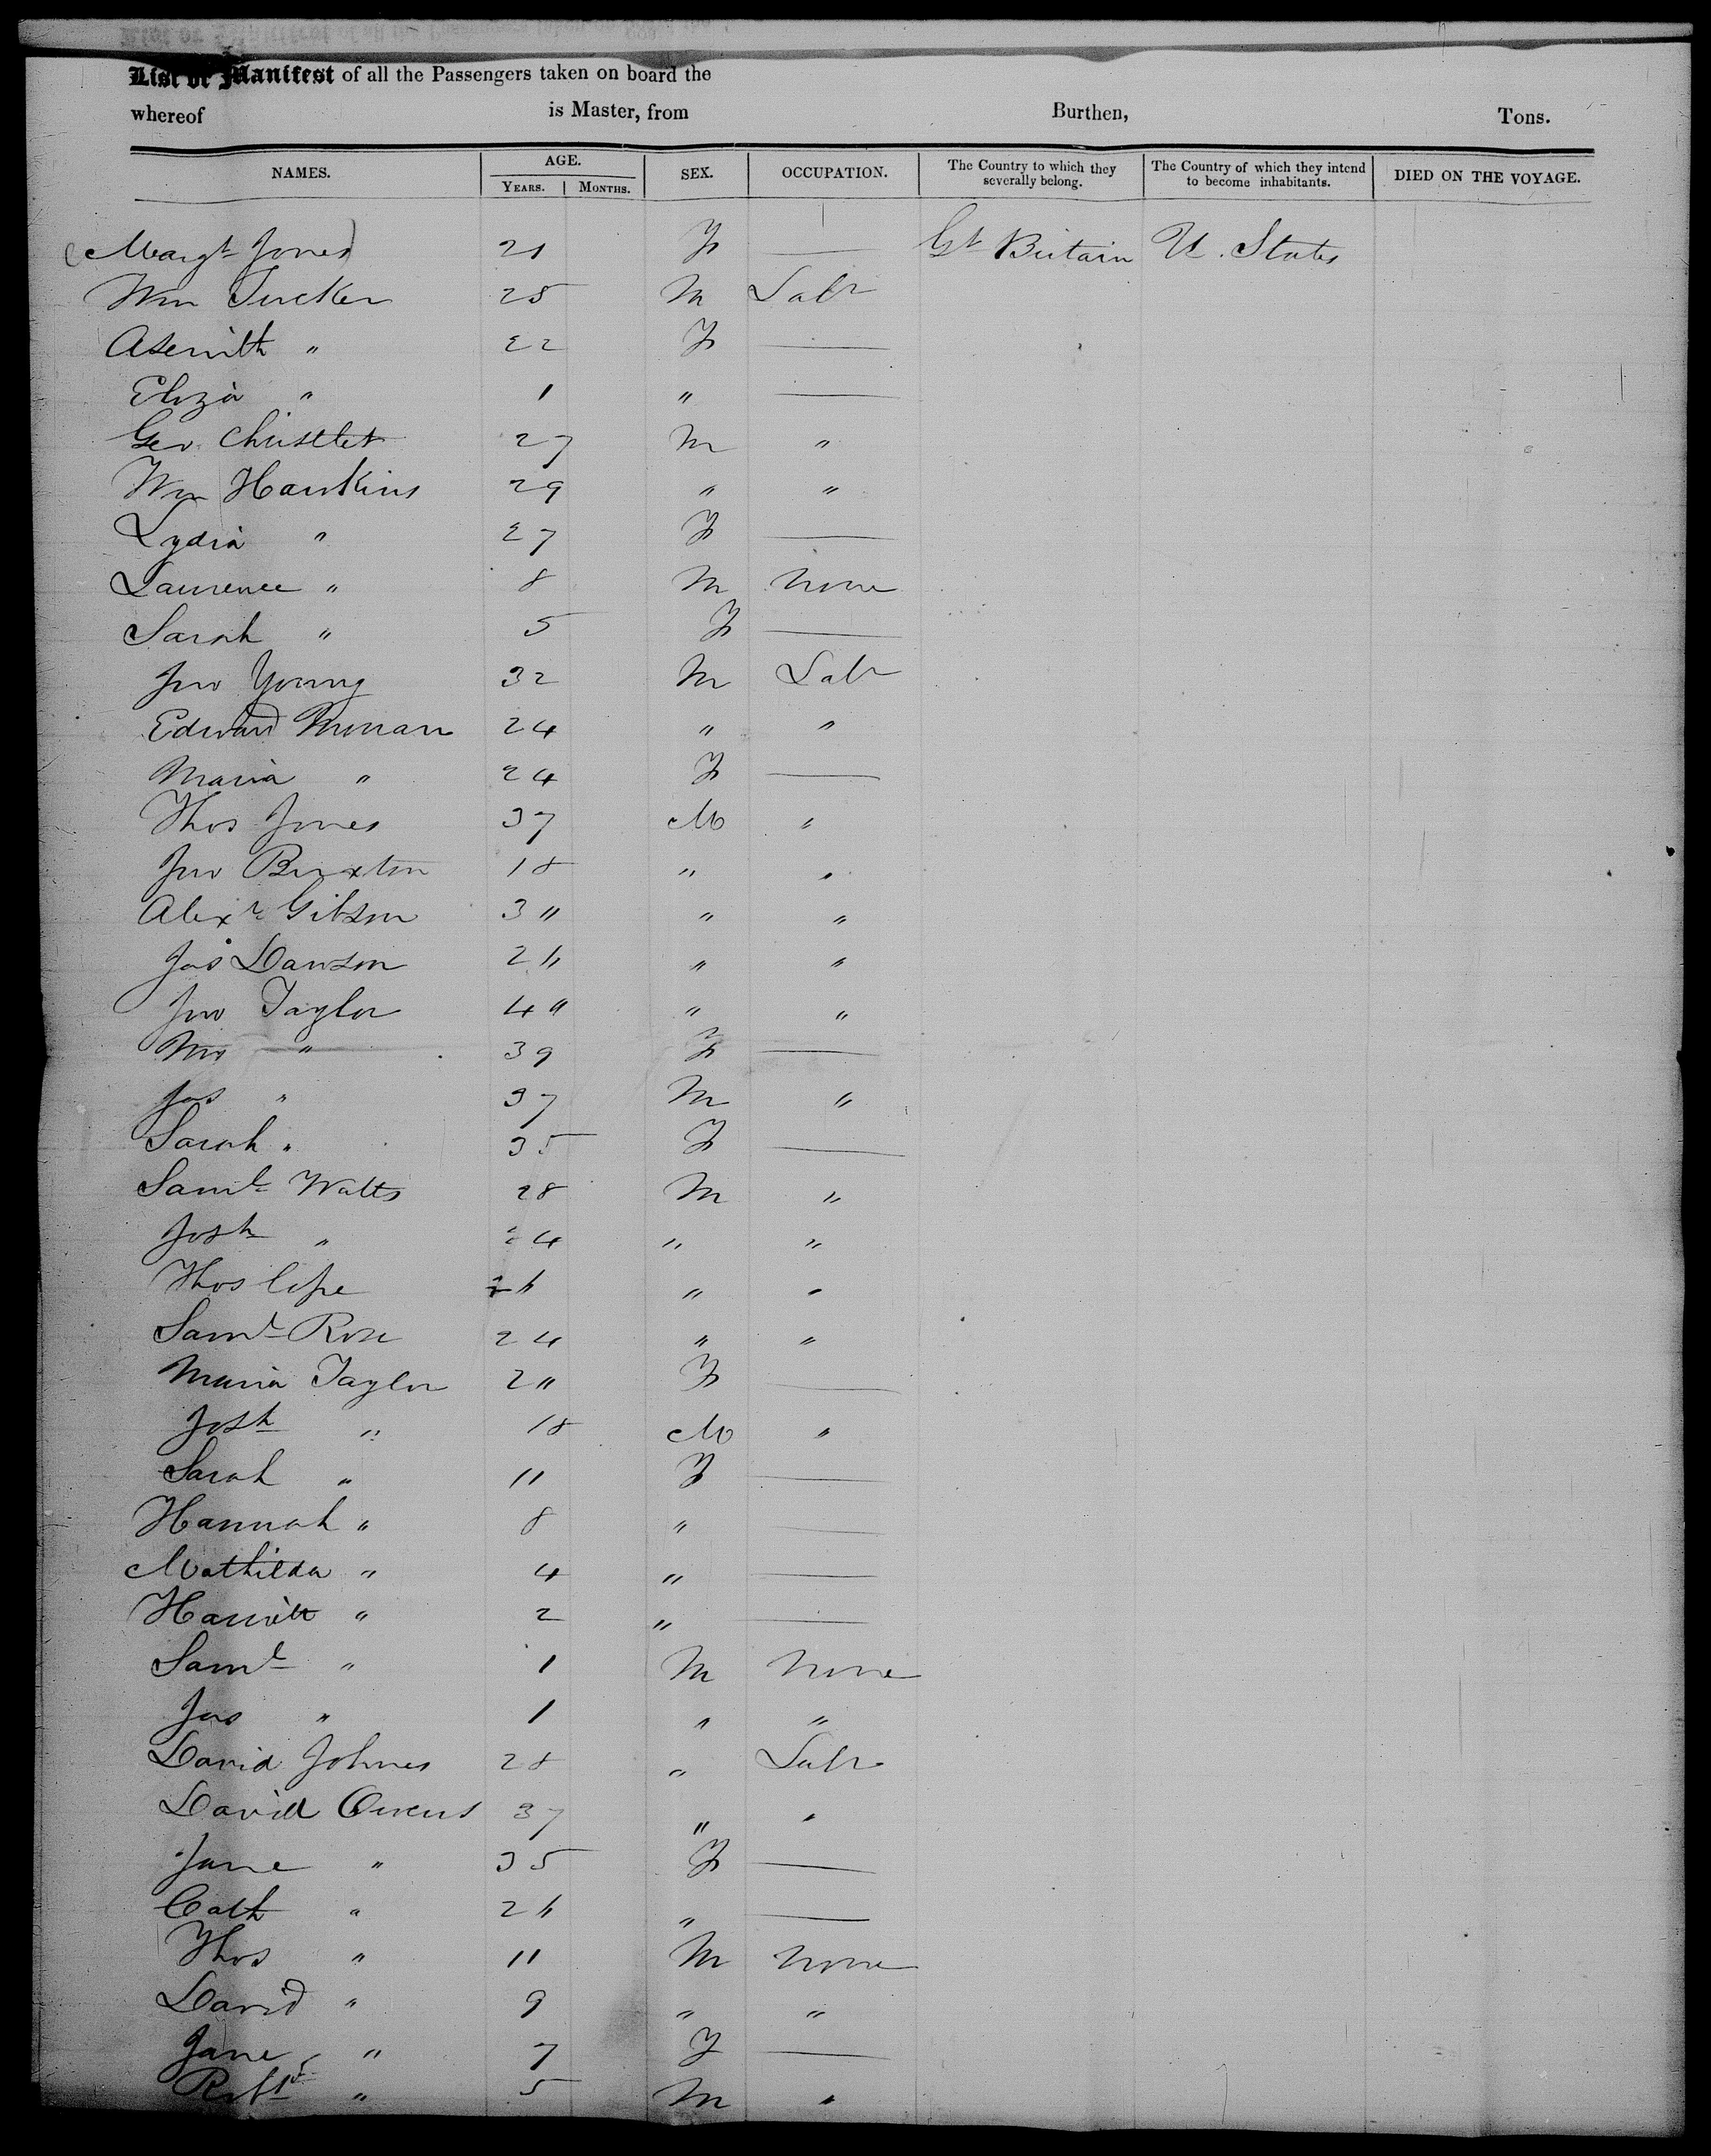 List or Manifest of all the Passengers taken on board the
whereof is Master, from Burthen, Tons.
NAMES. AGE. YEARS. MONTHS. SEX. OCCUPATION. The Country to which they severally belong. The Country of which they intend to become inhabitants. DIED ON THE VOYAGE.
Margt Jones 21 F — Gt Britain U. States
Wm Tucker 25 M Labr
Asenith " 22 F —
Eliza " 1 " —
Geo 27 M "
Wm Hawkins 29 " "
Lydia " 27 F —
Laurence " 8 M None
Sarah " 5 F —
Jno Young 32 M Labr
Edward 24 " "
Maria " 24 F —
Thos Jones 37 M "
Jno Buxton 18 " "
Alexr Gibson 3" " "
Jas Dawson 2" "
Jno Taylor 4" " "
Mrs " 39 F —
Jas " 37 M "
Sarah " 35 F —
Saml Watts 28 M "
Josh " 24 " "
Thos " "
Saml Rose 24 " "
Maria Taylor 2" F —
Josh " 18 M "
Sarah " 11 F —
Hannah " 8 " —
Mathilda " 4 " —
Harriett " 2 " —
Saml " 1 M None
Jas " 1 " "
David Johnes 28 " Labr
David Owens 37 " "
Jane " 35 F —
Cath " " —
Thos " 11 M None
David " 9 " "
Jane " 7 F —
Robt " 5 M "